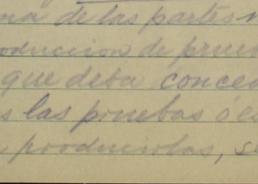 na de las partes
oducción de prueb
que deba conced
s las pruebas ó es
producirlas, se